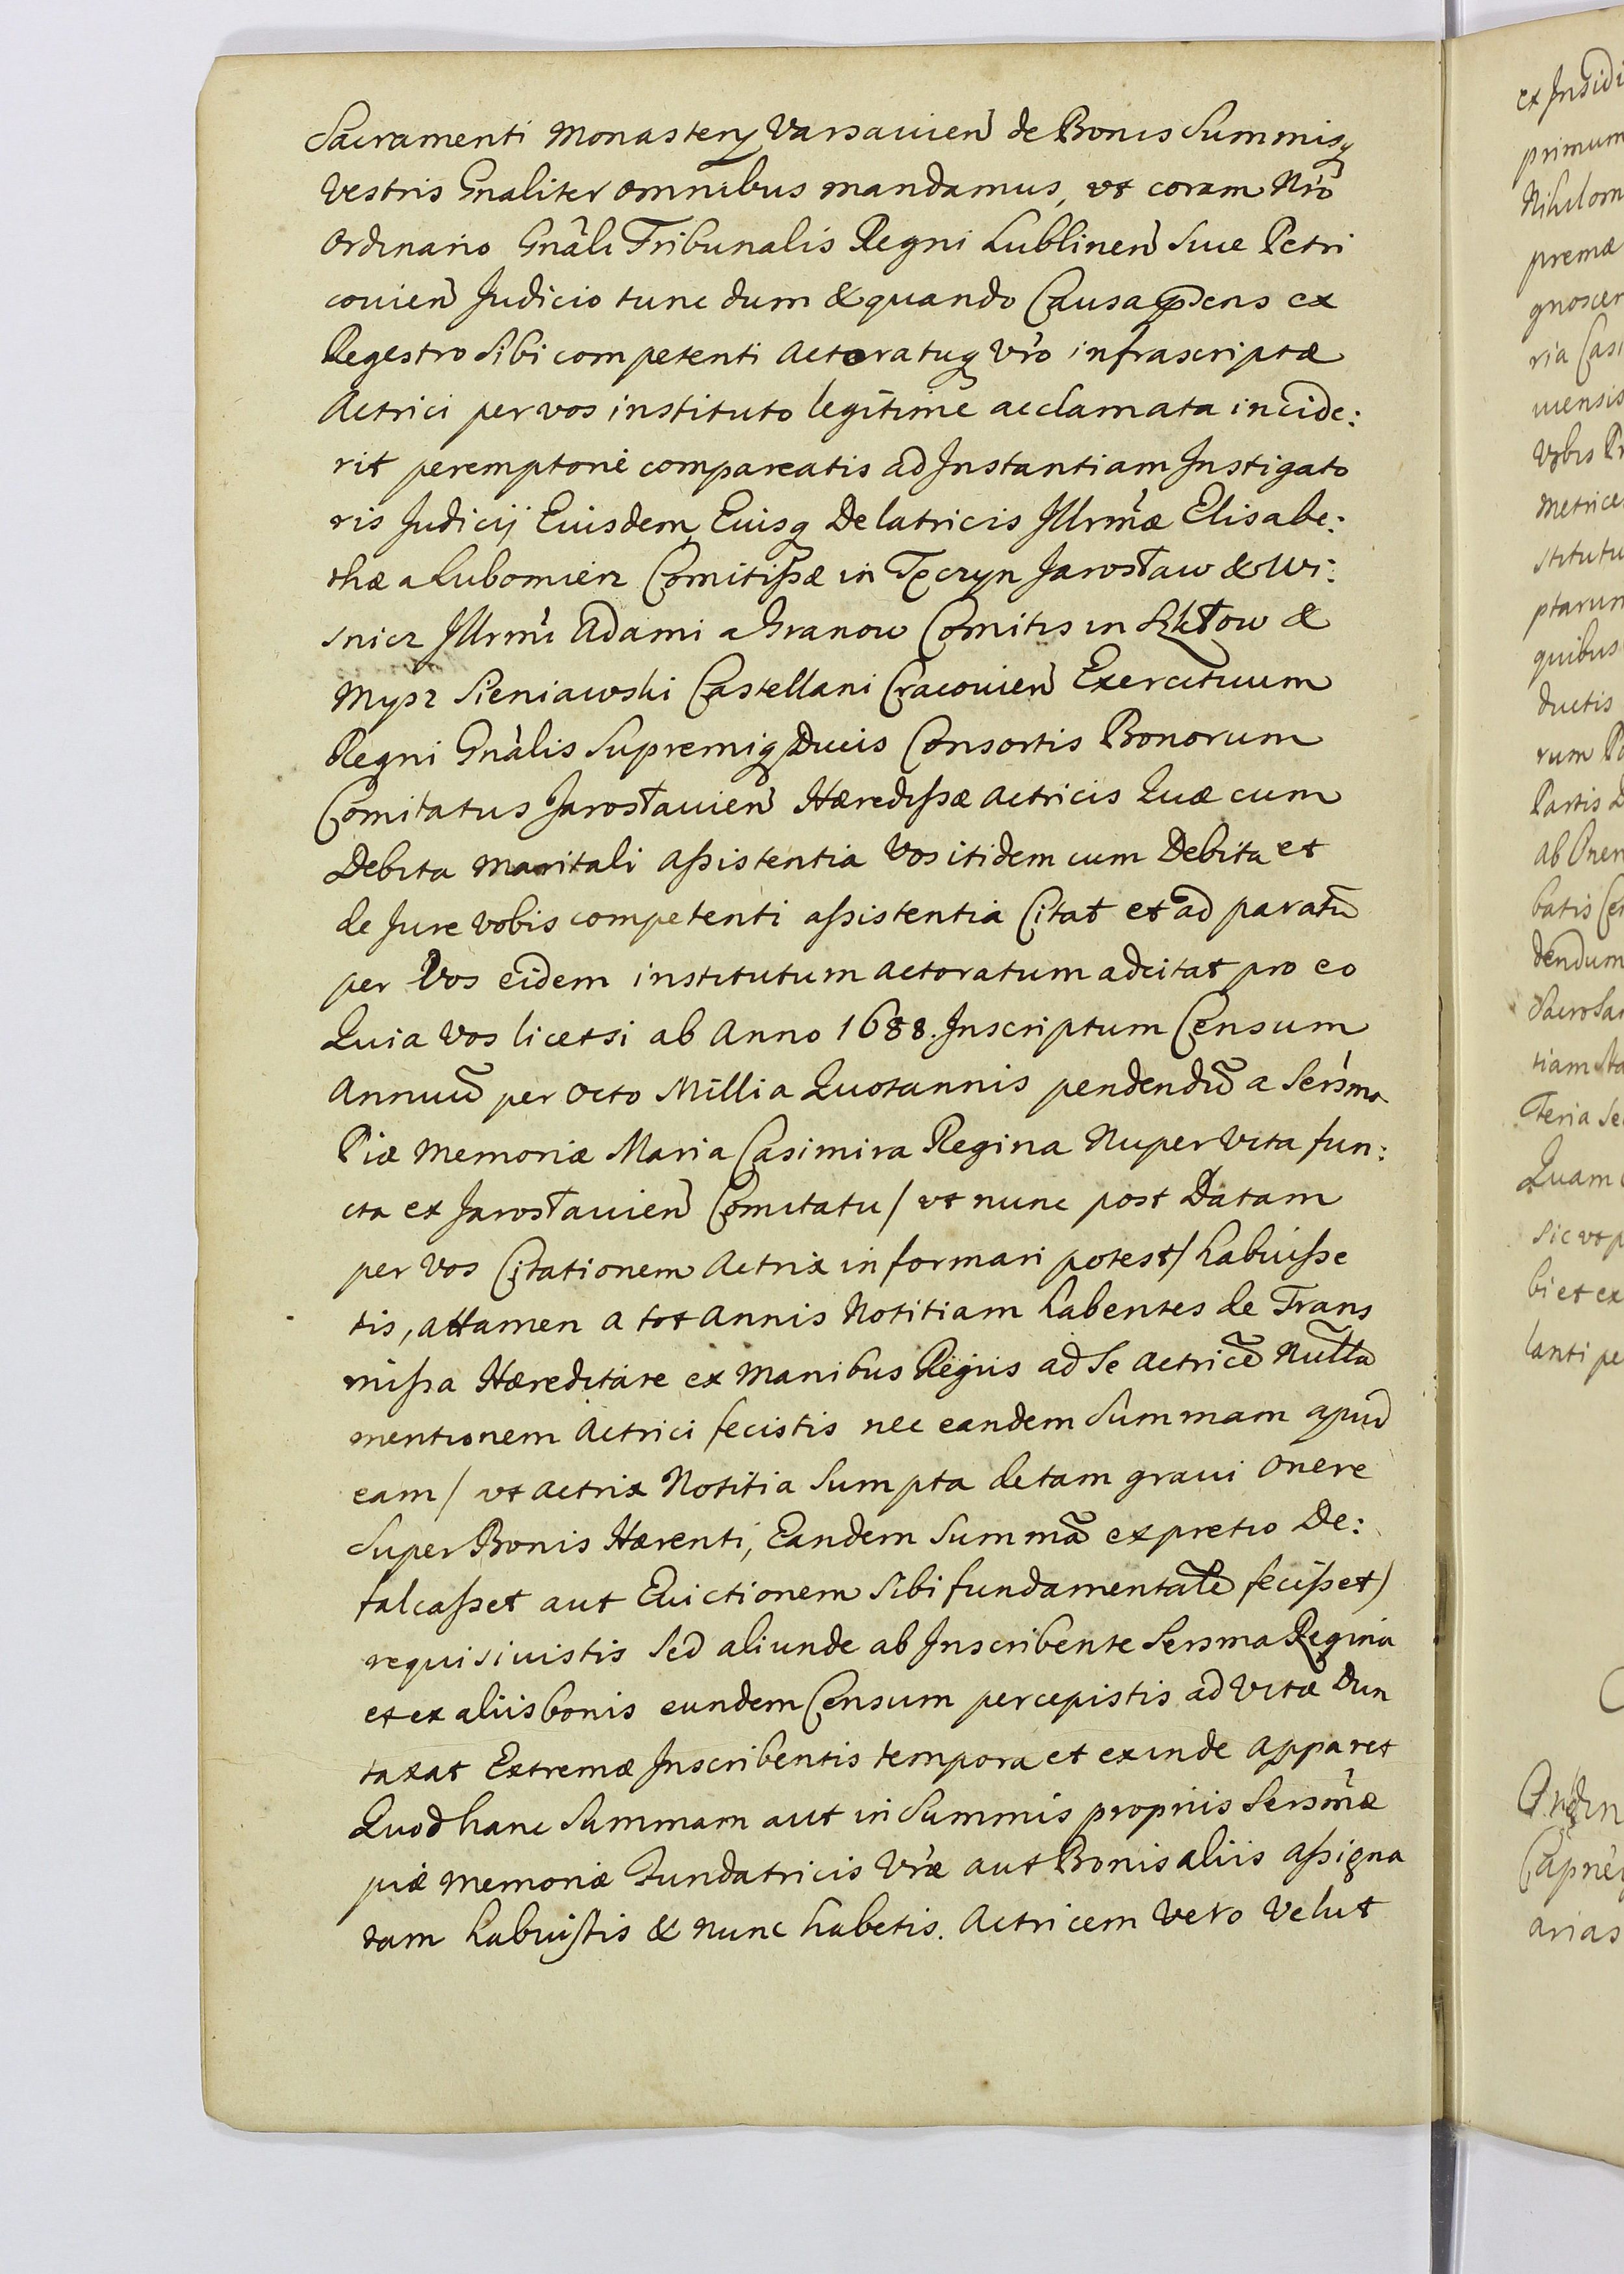 Sacramenti Monastery Varsavien̄ de Bonis Summisq
Vestris Gnaliter omnibus mandamus, vt coram Nr̃o
Ordinario Gnãli Tribunalis Regni Lublinen̄ Siue Petri
couien̄ Judicio tunc dum & quando Causa p̃sens ex
Regestro Sibi competenti Actoratuq Vr̃o infrascriptæ
Actrici per vos instituto legitime acclamata incide:
rit peremptorie compareatis ad Instantiam Instigato
ris Judicij Eiusdem Euisq Delatricis Illrm̃æ Elisabe:
thæ a Lubomierz Comitissæ in Tęczyn Jarosław & Wi:
snicz Illrm̃i Adami a Granow Comitis in Szkłow &
Mysz Sieniawski Castellani Cracouien̄ Exercituum
Regni Gnãlis Supremiq Ducis Consortis Bonorum
Comitatus Jarosłauien̄ Hæredissæ Actricis Quæ cum
Debita Maritali Assistentia Vos itidem cum Debita et
de Jure vobis competenti assistentia Citat et ad paratũ
per Vos eidem institutum Actoratum adcitat pro eo
Quia Vos licetsi ab Anno 1688. Inscriptum Censum
Annuũ per octo Millia Quotannis pendendũ a Sersm̃a
Piæ Memoriæ Maria Casimira Regina Nuper Vita fun:
cta ex Jarosłauien̄ Comitatu / vt nunc post Datam
per Vos Citationem Actrix informari potest / habuisse
tis, attamen a tot Annis Notitiam habentes de Trans
missa Hæreditate ex Manibus Regiis ad Se Actricẽ Nullã
mentionem Actrici fecistis nec eandem Summam apud
eam / vt Actrix Notitia Sumpta de tam graui Onere
Super Bonis Hærenti, Eandem Summã ex pretio De:
falcasset aut Euictionem Sibi fundamentalẽ fecisset /
requisiuistis Sed aliunde ab Inscribente Sersma Regina
et ex aliis bonis eundem Censum percepistis ad Vitæ Dun
taxat Extremæ Inscribentis tempora et exinde Apparet
Quod hanc Summam aut in Summis propriis Sersm̃æ
piæ Memoriæ Fundatricis Vr̃æ aut Bonis aliis Assigna
tam habuistis & nunc habetis. Actricem Vero Velut
ex Insidi
primum
Nihilom
premæ
gnoscer
ria Casi
uiensis
Vrbis Pr
Metrice
stitutu
ptarum
quibus
ductis
rum Po
Partis D
ab Onen
batis Ce
dendum
Sacrosan
tiam Sta
Teria Se
Quam
Sic vt p
bi et ex
lanti pe
Ordin
Capne
arias